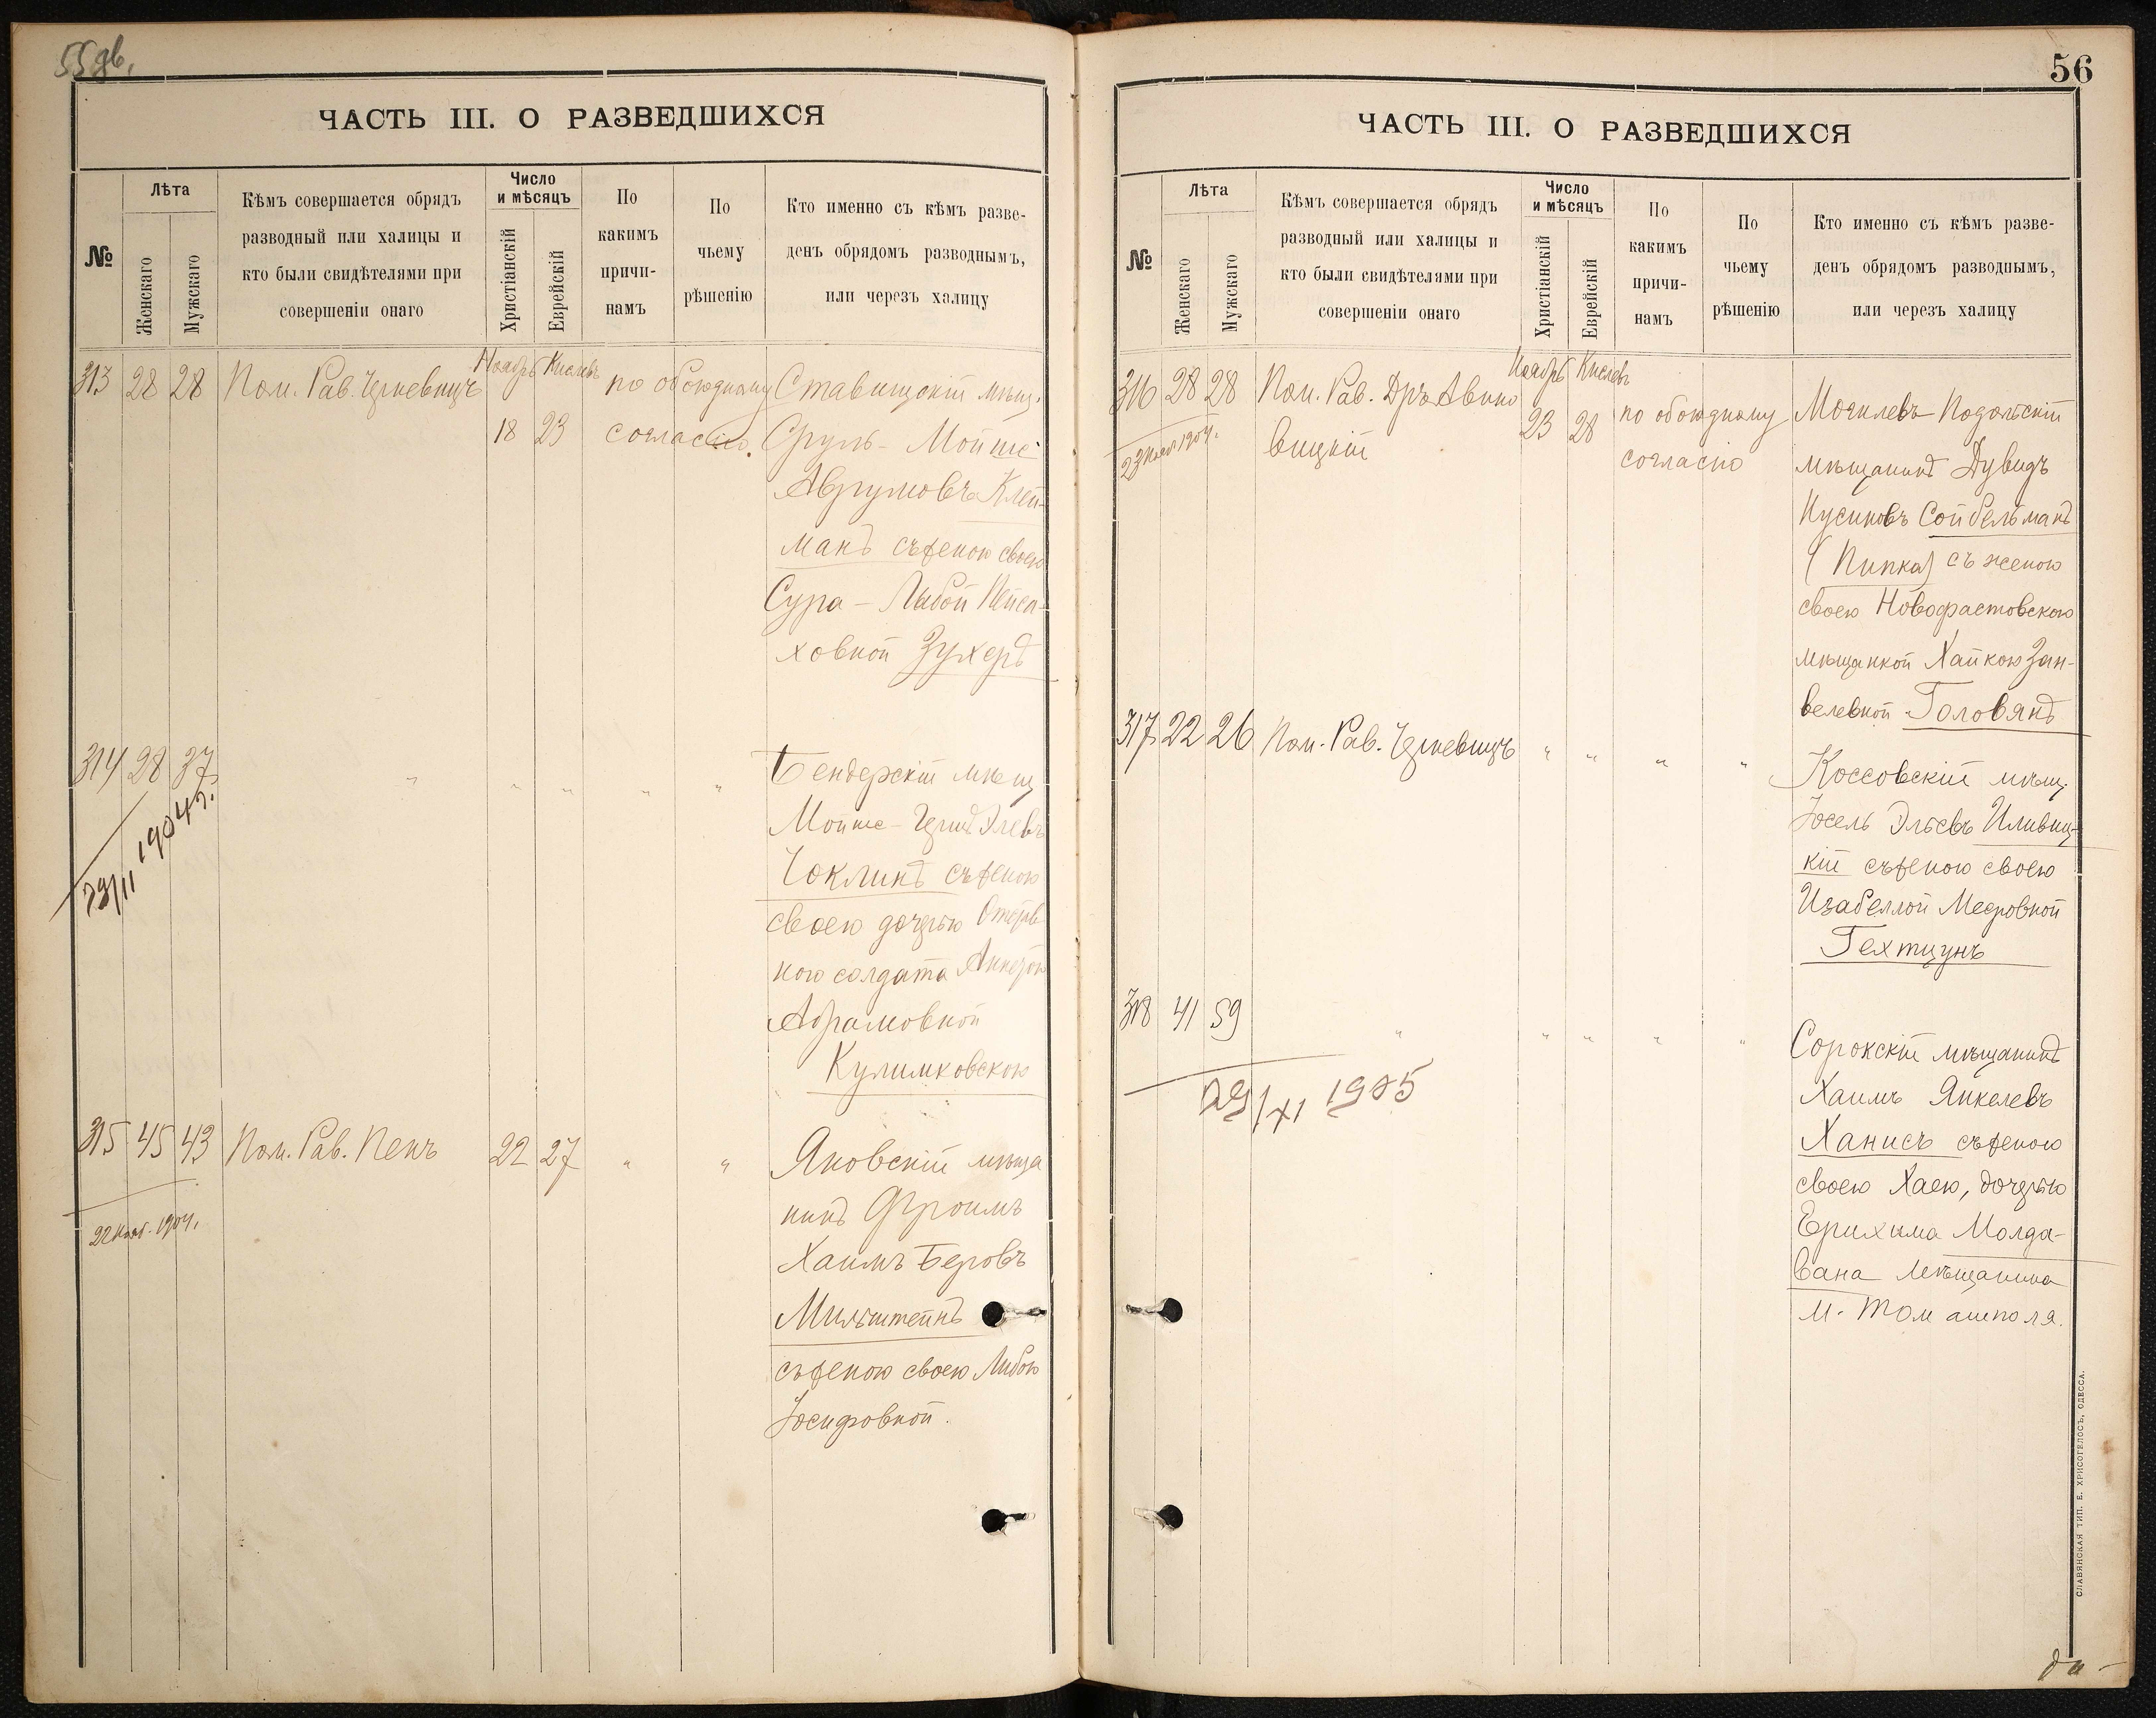 55 об.
ЧАСТЬ III. О РАЗВЕДШИХСЯ
№
Лѣта
Женскаго
Мужскаго
Кѣмъ совершается обрядъ
разводный или халицы и
кто были свидѣтелями при
совершеніи онаго
Число
и мѣсяцъ
Христіанскій
Еврейскій
По
какимъ
причи-
намъ
По
чьему
рѣшенію
Кто именно съ кѣмъ разве-
денъ обрядомъ разводнымъ,
или черезъ халицу
Ноябрь Кислевъ
313 28 28 Пом. Рав. Черкевичъ
18 23
по обоюдному
согласію.
Ставищскій мѣщ.
Сруль-Мойше
Аврумовъ Клей-
манъ съ женою своею
Сура-Либой Пейса-
ховной Зухеръ
314 28 37 " " " " "
29/11 1904 г.
Бендерскій мѣщ
Мойше-Герш Элевъ
Чоклинъ съ женою
своею дочерью
солдата
Абрамовной
Кулимковскою
315 45 43 Пом. Рав. Пенъ 22 27 " "
22 Нояб. 1904.
Яновскій мѣща
нинъ Фроимъ
Хаимъ Беровъ
Мильштейнъ
съ женою своею Либою
Іосифовной.
56
ЧАСТЬ III. О РАЗВЕДШИХСЯ
№
Лѣта
Женскаго
Мужскаго
Кѣмъ совершается обрядъ
разводный или халицы и
кто были свидѣтелями при
совершеніи онаго
Число
и мѣсяцъ
Христіанскій
Еврейскій
По
какимъ
причи-
намъ
По
чьему
рѣшенію
Кто именно съ кѣмъ разве-
денъ обрядомъ разводнымъ,
или черезъ халицу
Ноябрь Кислевъ
316 28 28 Пом. Рав. Дръ Авино
вицкій
23 28
по обоюдному
согласію
23 Нояб 1904.
Могилевъ Подольскій
мѣщанинъ Дувидъ
Нусиновъ Сойбельманъ
(Пипка) съ женою
своею Новофастовскою
мѣщанкой Хайкою Зан-
велевной Головянъ
317 22 26 Пом. Рав. Черкевичъ " " " "
Коссовскій мѣщ.
Іосель Эльевъ Иливиц-
кій съ женою своею
Изабеллой Мееровной
Гехтцунъ
318 41 59 " " " " "
29/XI 1905
Сорокскій мѣщанинъ
Хаимъ Янкелевъ
Ханисъ съ женою
своею Хаею, дочерью
Ерихима Молда-
вана мѣщанина
м. Томашполя.
СЛАВЯНСКАЯ ТИП. Е. ХРИСОГЕЛОСЪ, ОДЕССА.